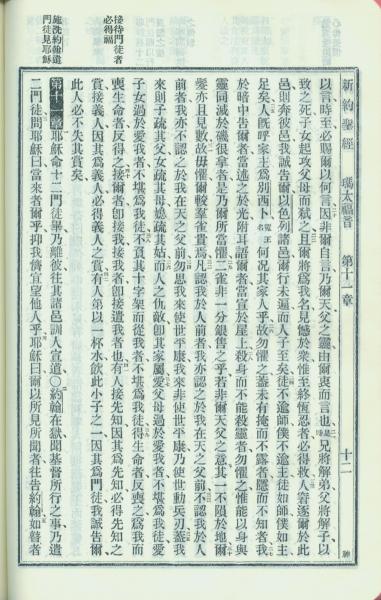 新約聖經 馬太福音 第十一章 十二
以言時至必賜爾以何言因非爾自言乃爾天父之靈由爾衷而言也兄將解弟父將解子以
致之死子女起攻父母而弑之且爾將爲我名見憾於衆惟至終恆忍者必得救人窘逐爾於此
邑則奔彼邑我誠告爾以色列諸邑爾行未遍而人子至矣徒不逾師僕不逾主徒如師僕如主
足矣人既呼家主爲別西卜何況其家人乎故勿懼之蓋未有掩而不露者隱而不知者我
於暗中告爾者當述之於光附耳語爾者當宣於屋上殺身而不能殺靈者勿懼之惟能以身與
靈同滅於磯很拿者是乃爾所當懼二雀非一分銀售之乎若非爾天父之意其一不隕於地爾
髮亦且見數故毋懼爾較羣雀貴焉凡認我於人前者我亦認之於我在天之父前不認我於人
前者我亦不認之於我在天之父前勿思我來使世平康我來非使世平康乃使世動兵刃蓋我
來則子疏其父女疏其母媳疏其姑而人之仇敵卽其家屬愛父母過於愛我者不堪爲我徒愛
子女過於愛我者不堪爲我徒不負其十字架而從我者不堪爲我徒得生命者反喪之爲我而
喪生命者反得之接爾者卽接我接我者卽接遣我者也有人接先知因其爲先知必得先知之
賞接義人因其爲義人必得義人之賞有人第以一杯水飲此小子之一因其爲門徒我誠告爾
此人必不失其賞矣
接待門徒者
必得福
第十一章 耶穌命十二門徒畢乃離彼往其諸邑訓人宣道○約翰在獄聞基督所行之事乃遣
施洗約翰遣
門徒見耶穌
二門徒問耶穌曰當來者爾乎抑我儕宜望他人乎耶穌曰爾以所見所聞者往告約翰如瞽者